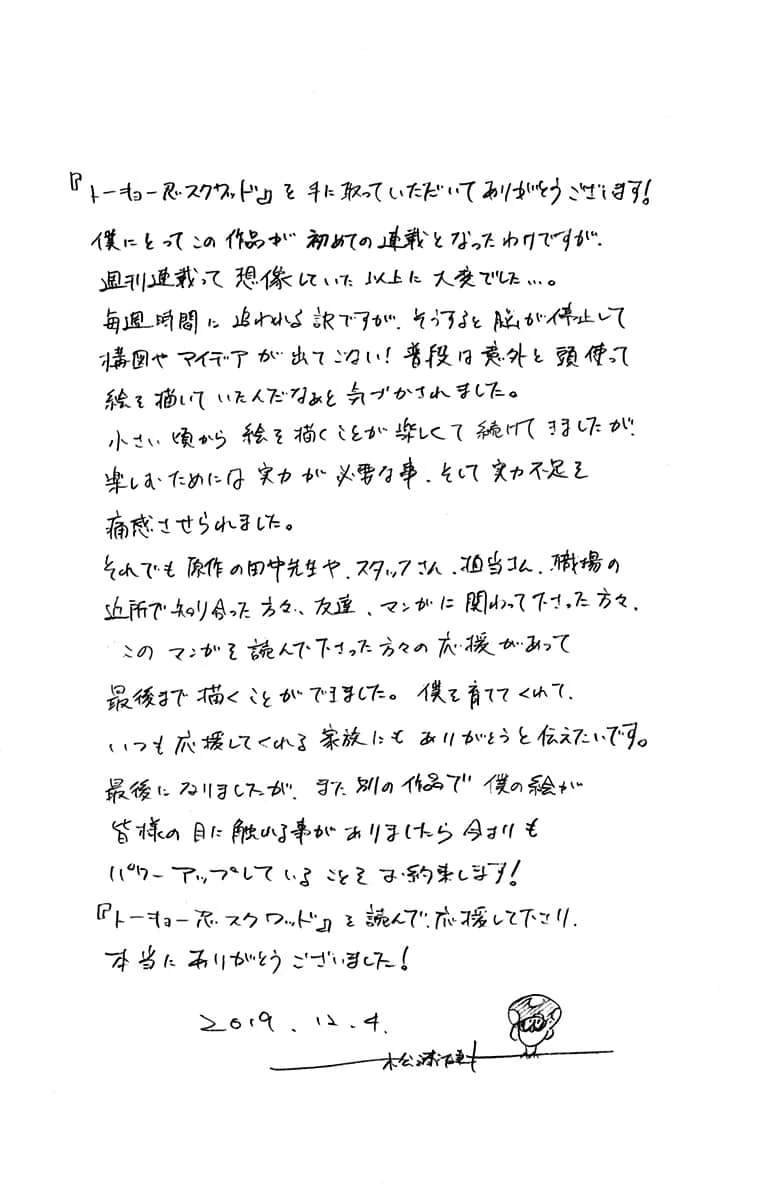 『トーキョー忍スクワッド』を手に取っていただいてありがとうございます！
僕にとってこの作品が初めての連載となったわけですが、
週刊連載って想像していた以上に大変でした…。
毎週時間に追われる訳ですが、そうすると脳が停止して
構図やアイデアが出てこない！普段は意外と頭使って
絵を描いていたんだなぁと気づかされました。
小さい頃から絵を描くことが楽しくて続けてきましたが、
楽しむためには実力が必要な事、そして実力不足を
痛感させられました。
それでも原作の田中先生や、スタッフさん、担当さん、職場の
近所で知り合った方々、友達、マンガに関わって下さった方々、
このマンガを読んで下さった方々の応援があって
最後まで描くことができました。僕を育ててくれて、
いつも応援してくれる家族にもありがとうと伝えたいです。
最後になりましたが、また別の作品で僕の絵が
皆様の目に触れる事がありましたら今よりも
パワーアップしていることをお約束します！
『トーキョー忍スクワッド』を読んで、応援して下さり、
本当にありがとうございました！
2019.12.4.
松浦健人